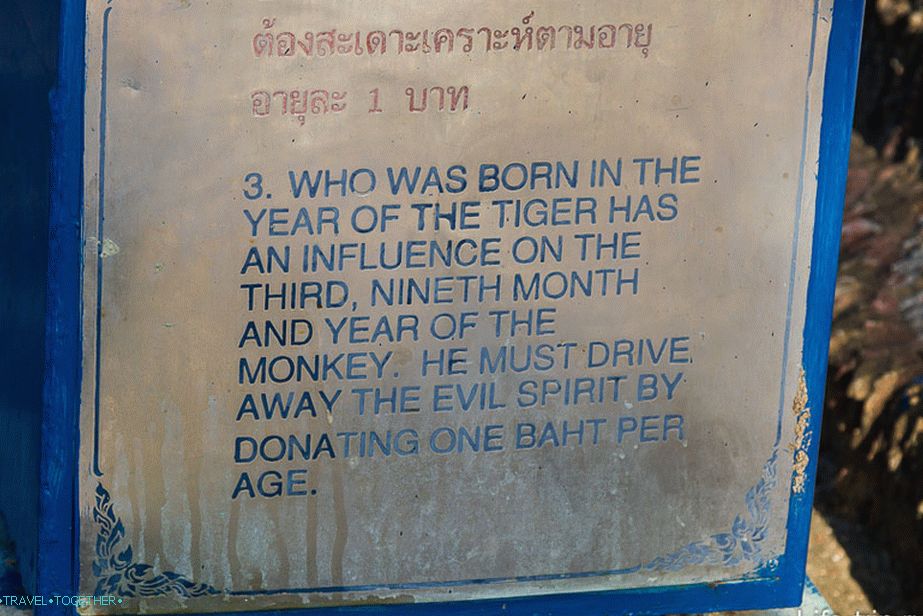 ต้องสะเดาะเคราะห์ตามอายุ
อายุละ 1 บาท
3. WHO WAS BORN IN THE
YEAR OF THE TIGER HAS
AN INFLUENCE ON THE
THIRD, NINETH MONTH
AND YEAR OF THE
MONKEY. HE MUST DRIVE
AWAY THE EVIL SPIRIT BY
DONATING ONE BAHT PER
AGE.
•TRAVEL•TOGETHER•